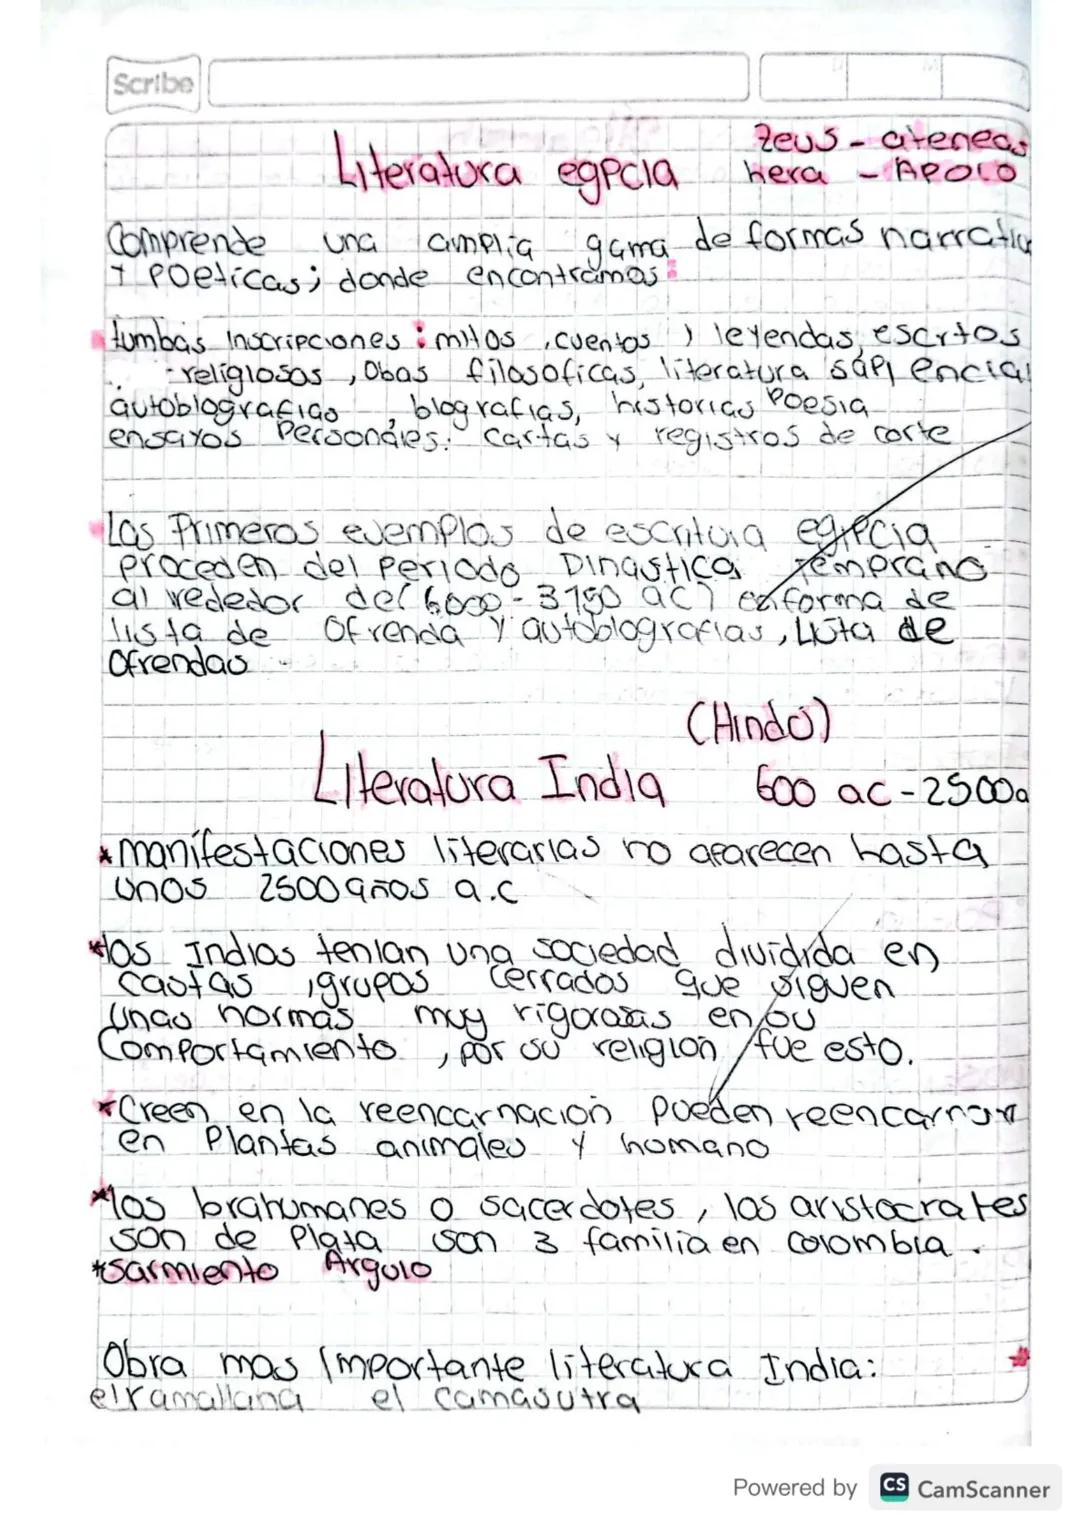 Scribe
Zeus - ateneas
Literatura egpcia hera - APOLO
Comprende una amplia gama de formas narrativ
y Poeticas; donde encontramos:
tumbas Inscripciones: mitos, cuentos, leyendas, escrtos
religiosos, Obas filosoficas, literatura sapiencial
autobiografias, biografias, historias Poesia
ensayos Personales. Cartas y registros de corte
Los Primeros ejemplos de escritura egipcia
proceden del Periodo Dinastico Temprano
al rededor de (6000 - 3150 ac) enforma de
lista de Ofrenda y autobiografias, Lista de
Ofrendas
(Hindú)
Literatura India 600 ac - 2500a
*manifestaciones literarias no aparecen hasta
unos 2500 años a.c
*los Indios tenian una sociedad dividida en
castas, grupos cerrados que siguen
unas normas muy rigorosas en su
Comportamiento, por su religion fue esto.
*Creen en la reencarnación Pueden reencarnar
en Plantas animales y humano
*los brahumanes o sacerdotes, los aristocrates
son de Plata son 3 familia en colombia.
*Sarmiento Argulo
Obra mas Importante literatura India:
el ramallana el camasutra
Powered by CS CamScanner